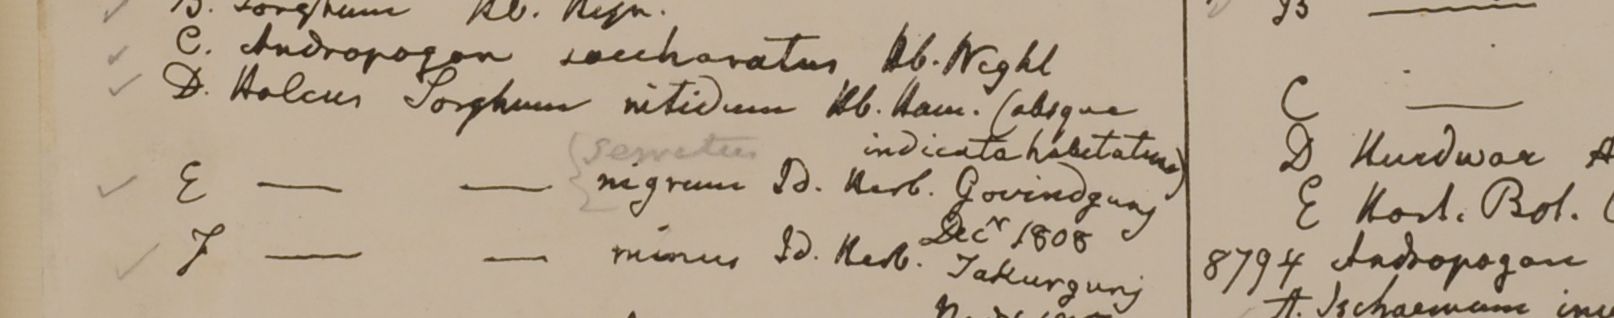 B. Sorghum Hb. Heyn.
C. Andropogon saccharatus Hb. Wight
D. Holcus Sorghum nitidum Hb. Ham. (absque
indicata habitatione)
(serratus
E — — nigrum Id. Herb. Govindgunj
Decr 1808
F — — minus Id. Herb. Takurgunj
B —
C —
D Hurdwar
E Hort. Bot.
8794 Andropogon
A. Ischaemum